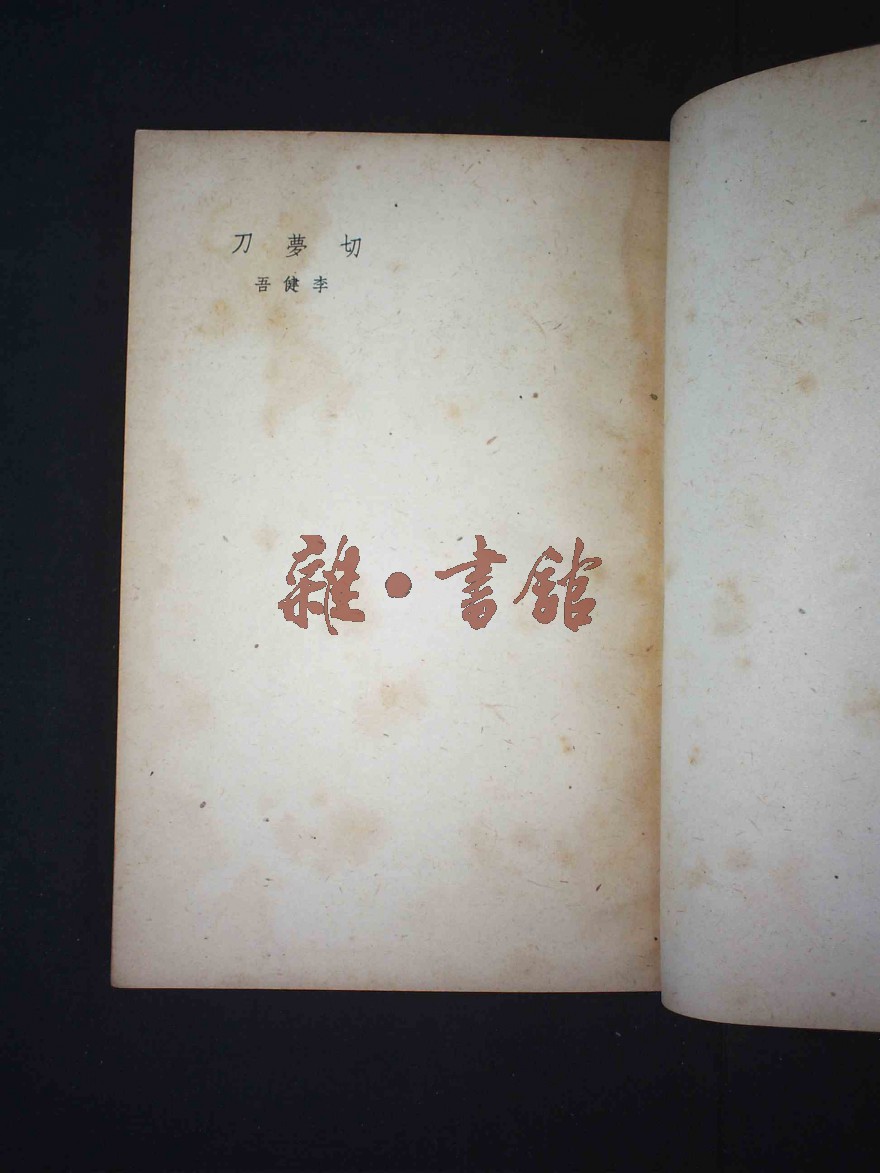 切夢刀
李健吾
雜·書館